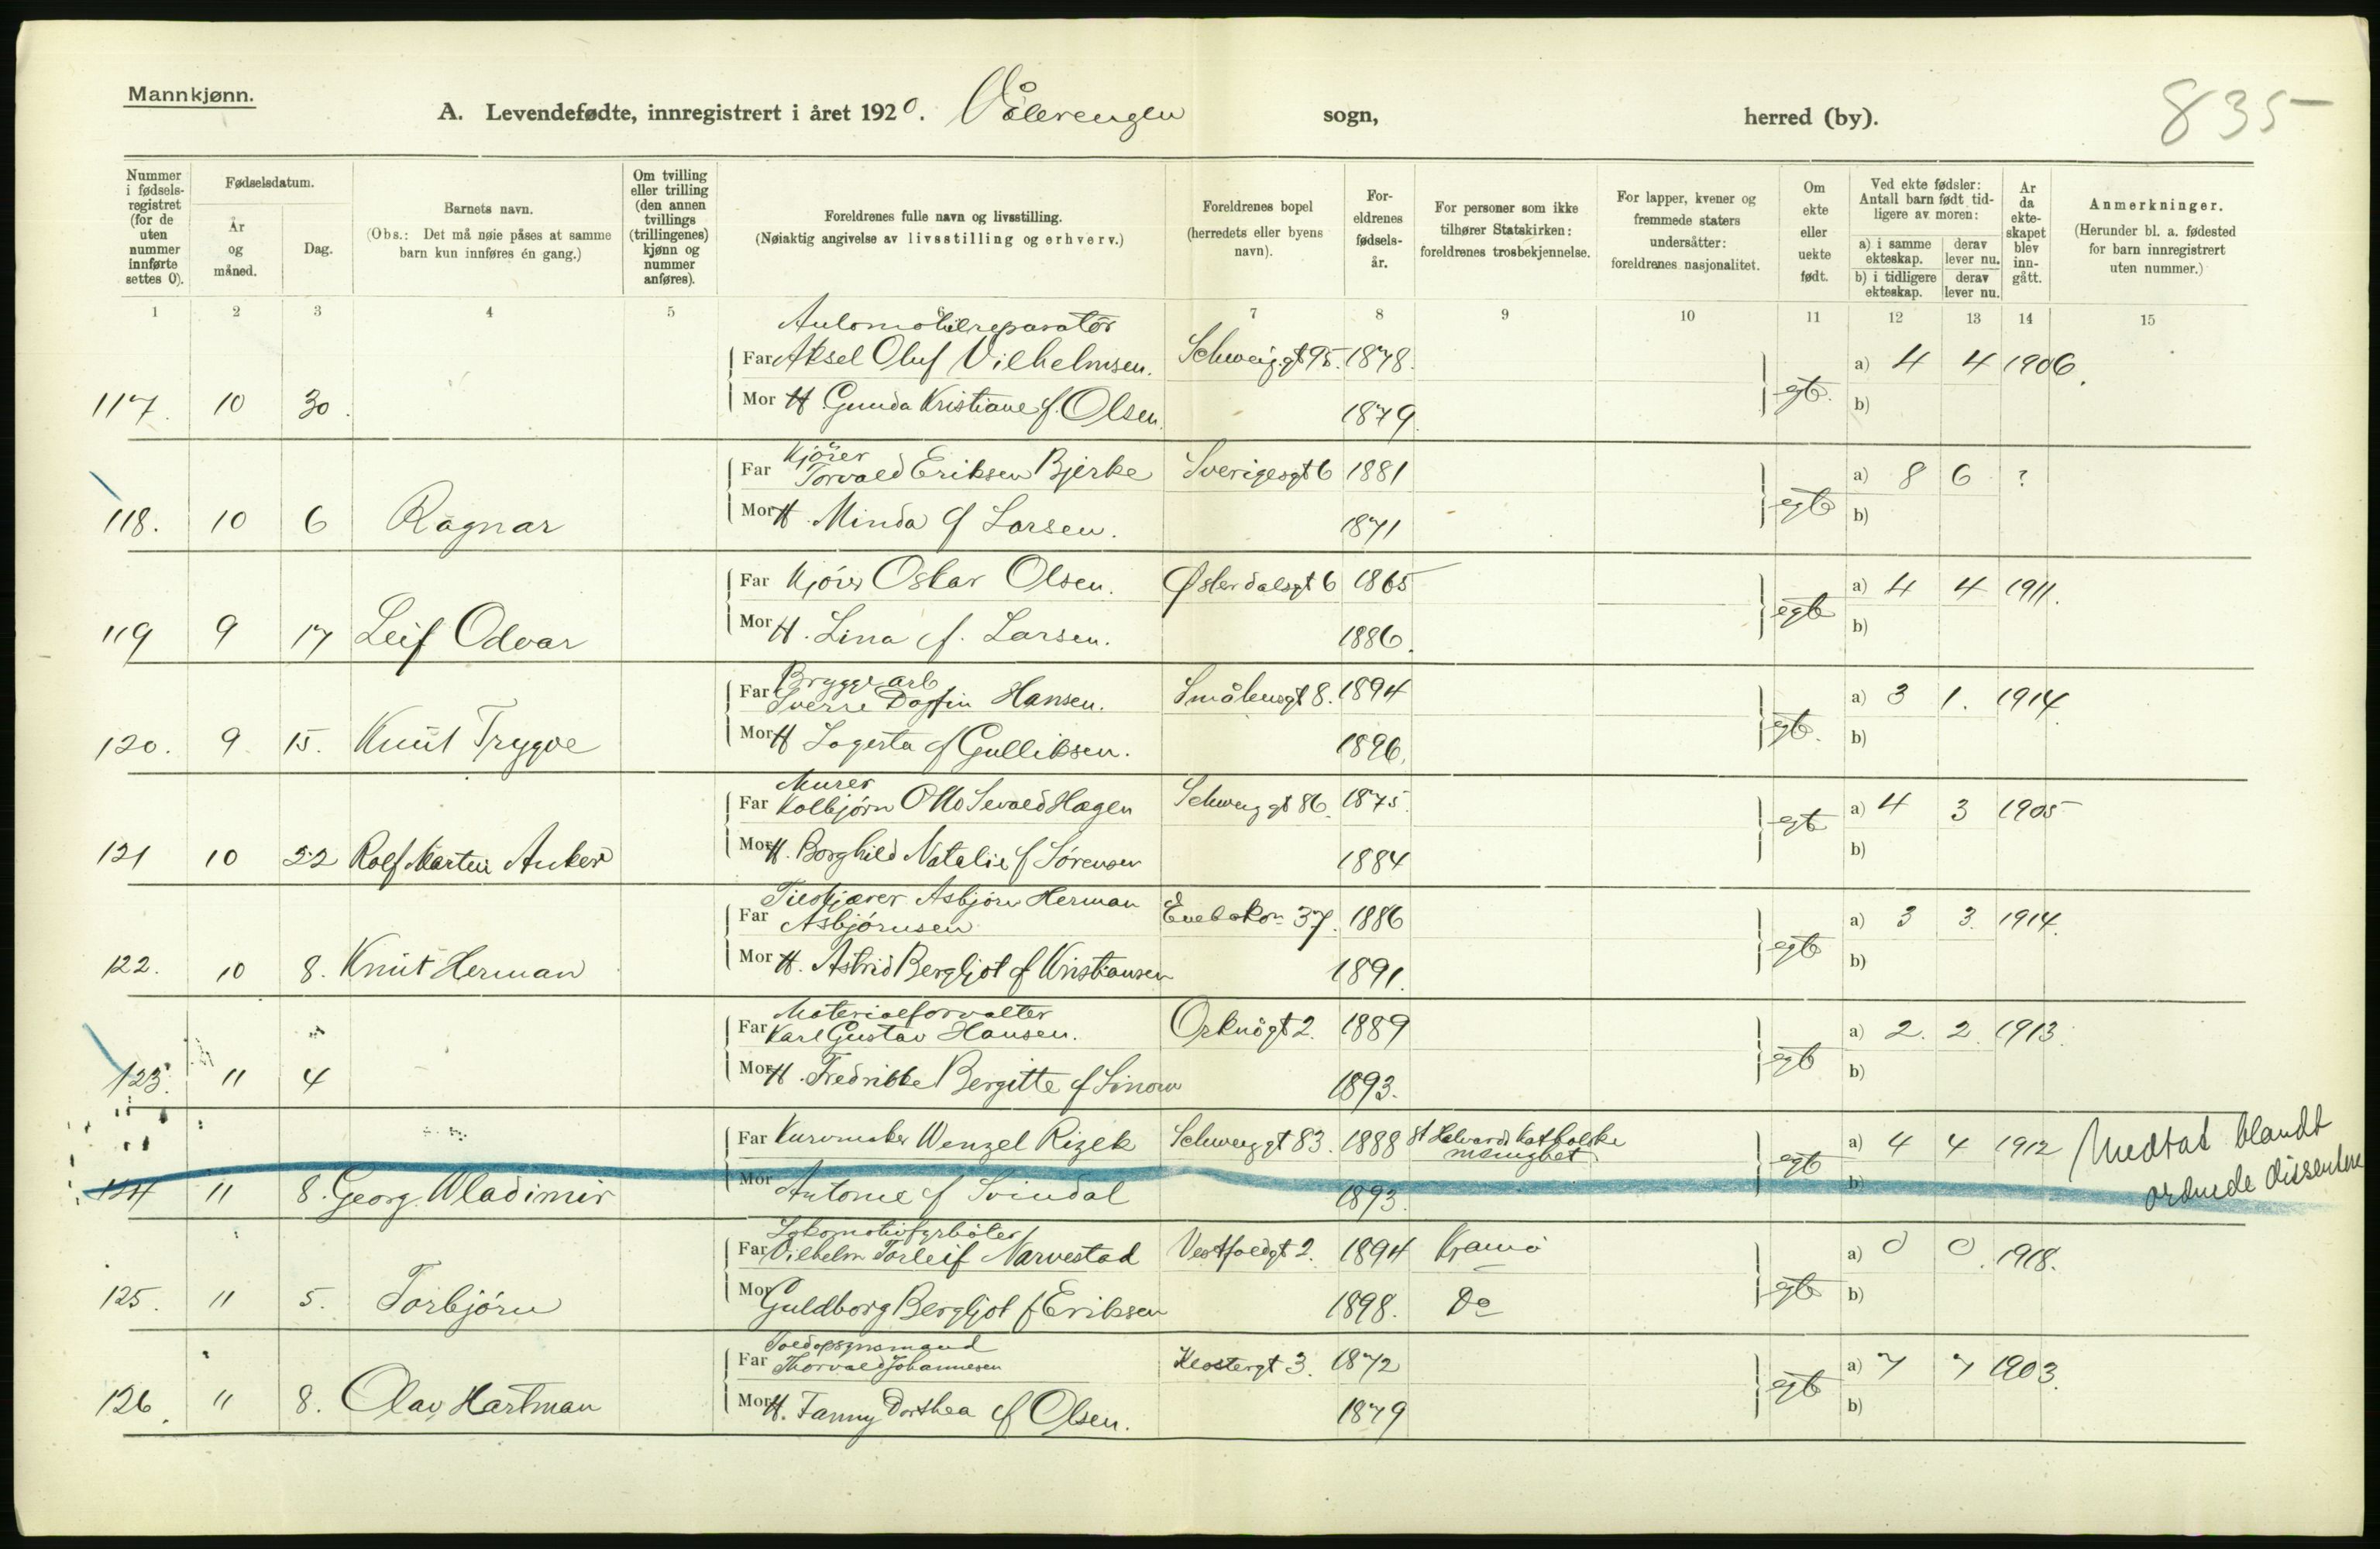 Mannkjønn.
A. Levendefødte, innregistrert i året 1920. Vålerengen sogn, herred (by). 835
Nummer i fødselsregistret (for de uten nummer innførte settes 0).
Fødselsdatum.
År og måned.
Dag.
Barnets navn.
(Obs.: Det må nøie påses at samme barn kun innføres én gang.)
Om tvilling eller trilling (den annen tvillings (trillingenes) kjønn og nummer anføres).
Foreldrenes fulle navn og livsstilling.
(Nøiaktig angivelse av livsstilling og erhverv.)
Foreldrenes bopel (herredets eller byens navn).
Foreldrenes fødselsår.
For personer som ikke tilhører Statskirken: foreldrenes trosbekjennelse.
For lapper, kvener og fremmede staters undersåtter: foreldrenes nasjonalitet.
Om ekte eller uekte født.
Ved ekte fødsler: Antall barn født tidligere av moren:
a) i samme ekteskap. derav lever nu.
b) i tidligere ekteskap. derav lever nu.
År da ekteskapet blev inngått.
Anmerkninger.
(Herunder bl. a. fødested for barn innregistrert uten nummer.)
1 2 3 4 5 6 7 8 9 10 11 12 13 14 15
Automobilreparatör
Far Aksel Oluf Vilhelmsen. Schweig.gt 95. 1878. a) 4 4 1906.
117. 10 30. Mor H. Gunda Kristiane f. Olsen. 1879. egte. b)
Kjörer
Far Torvald Eriksen Bjerke Sverigesgt 6 1881 a) 8 6 ?
118. 10 6 Ragnar Mor H. Minda f Larsen. 1871 egte b)
Far Kjörer Oskar Olsen. Østerdalsgt 6 1865 a) 4 4 1911.
119 9 17 Leif Odvar Mor H. Lina f. Larsen. 1886. egte b)
Bryggeriarb
Far Sverre Dagfin Hansen. Smålensgt 8. 1894 a) 3 1. 1914
120. 9 15. Knut Trygve Mor H Lagerta f Gulliksen. 1896. egte. b)
Murer
Far Kolbjørn Otto Sevald Hagen Schweiggt 86. 1875. a) 4 3 1905
121 10 22 Rolf Martin Anker Mor H. Borghild Natalie f Sörensen 1884 egte b)
Asbjörn Herman
Far Asbjörnsen Enebakv 37. 1886 a) 3 3. 1914.
122. 10 8. Knut Herman Mor H. Astrid Bergljot f Kristiansen 1891. egte b)
Materialforvalter
Far Karl Gustav Hansen. Orknögt 2. 1889 a) 2. 2. 1913.
123. 11 4 Mor H. Fredrikke Bergitte f 1893. egte b)
Far Kurvmaker Wenzel Rizek Schweiggt 83. 1888 St Halvards Katholske menighet a) 4 4 1912 Medtat blandt ordnede dissentere
124 11 8. Georg Wladimir Mor Antonie f Svindal 1893. egte b)
Lokomotivfyrböter
Far Vilhelm Torleif Narvestad Vestfoldgt 2. 1894 a) 0 0. 1918.
125. 11 5. Torbjörn Mor Guldborg Bergljot f Eriksen 1898. Do egte b)
Toldopsynsmand
Far Thorvald Johannesen Klostergt 3. 1872 a) 7 7 1903.
126. 11 8. Olav Hartman Mor H. Fanny Dorthea f Olsen. 1879 egte b)